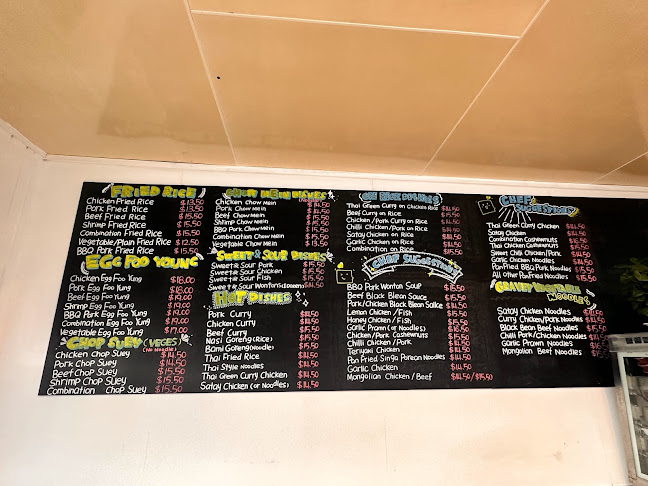 FRIED RICE
Chicken Fried Rice $13.50
Pork Fried Rice $13.50
Beef Fried Rice $15.50
Shrimp Fried Rice $15.50
Combination Fried Rice $15.50
Vegetable/Plain Fried Rice $12.50
BBQ Pork Fried Rice $15.50
EGG FOO YOUNG
Chicken Egg Foo Yung $18.00
Pork Egg Foo Yung $18.00
Beef Egg Foo Yung $19.00
Shrimp Egg Foo Yung $19.00
BBQ Park Egg Foo Yung $19.00
Combination Egg Foo Yung $19.00
Vegetable Egg Foo Yung $17.00
CHOP SUEY (VEGES)
(No Noodles)
Chicken Chop Suey $14.50
Pork Chop Suey $14.50
Beef Chop Suey $15.50
Shrimp Chop Suey $15.50
Combination Chop Suey $15.50
CHOW MEIN DISHES
Chicken Chow Mein $14.50
Pork Chow Mein $14.50
Beef Chow Mein $15.50
Shrimp Chow Mein $15.50
BBQ Pork Chow Mein $15.50
Combination Chow Mein $15.50
Vegetable Chow Mein $13.50
SWEET & SOUR DISHES
Sweet & Sour Pork $15.50
Sweet & Sour Chicken $15.50
Sweet & Sour Fish $15.50
Sweet & Sour Wontons $14.50
HOT DISHES
Pork Curry $14.50
Chicken Curry $14.50
Beef Curry $15.50
Nasi Goreng (Rice) $15.50
Bami Goreng (Noodle) $15.50
Thai Fried Rice $14.50
Thai Style Noodles $14.50
Thai Green Curry Chicken $14.50
Satay Chicken (or Noodles) $14.50
ON RICE DISHES
Thai Green Curry on Chicken Rice $14.50
Beef Curry on Rice $15.50
Chicken/Pork Curry on Rice $14.50
Chilli Chicken/Pork on Rice $14.50
Satay Chicken on Rice $14.50
Garlic Chicken on Rice $14.50
Combination on Rice $15.50
CHOP SUGGESTION
BBQ Pork Wonton Soup $15.50
Beef Black Bean Sauce $15.50
Pork/Chicken Black Bean Sauce $14.50
Lemon Chicken/Fish $15.50
Honey Chicken/Fish $15.50
Garlic Prawn (or Noodles)
Chicken/Pork Cashewnuts $15.50
Chilli Chicken/Pork $14.50
Teriyaki Chicken $14.50
Pan Fried Singa Porean Noodles $14.50
Garlic Chicken $14.50
Mongolian Chicken/Beef $14.50/$15.50
CHEF SUGGESTION
Thai Green Curry Chicken $14.50
Satay Chicken $14.50
Combination Cashewnuts $15.50
Thai Chicken Cashewnuts $15.50
Sweet Chilli Chicken/Pork $14.50
Garlic Chicken Noodles $14.50
Pan Fried BBQ Pork Noodles $15.50
All other Pan Fried Noodles $15.50
GRAVEY VEGETABLE NOODLES
Satay Chicken Noodles $14.50
Curry Chicken/Pork Noodles $14.50
Black Bean Beef Noodles $15.50
Chilli Pork/Chicken Noodles $14.50
Garlic Prawn Noodles
Mongolian Beef Noodles $15.50